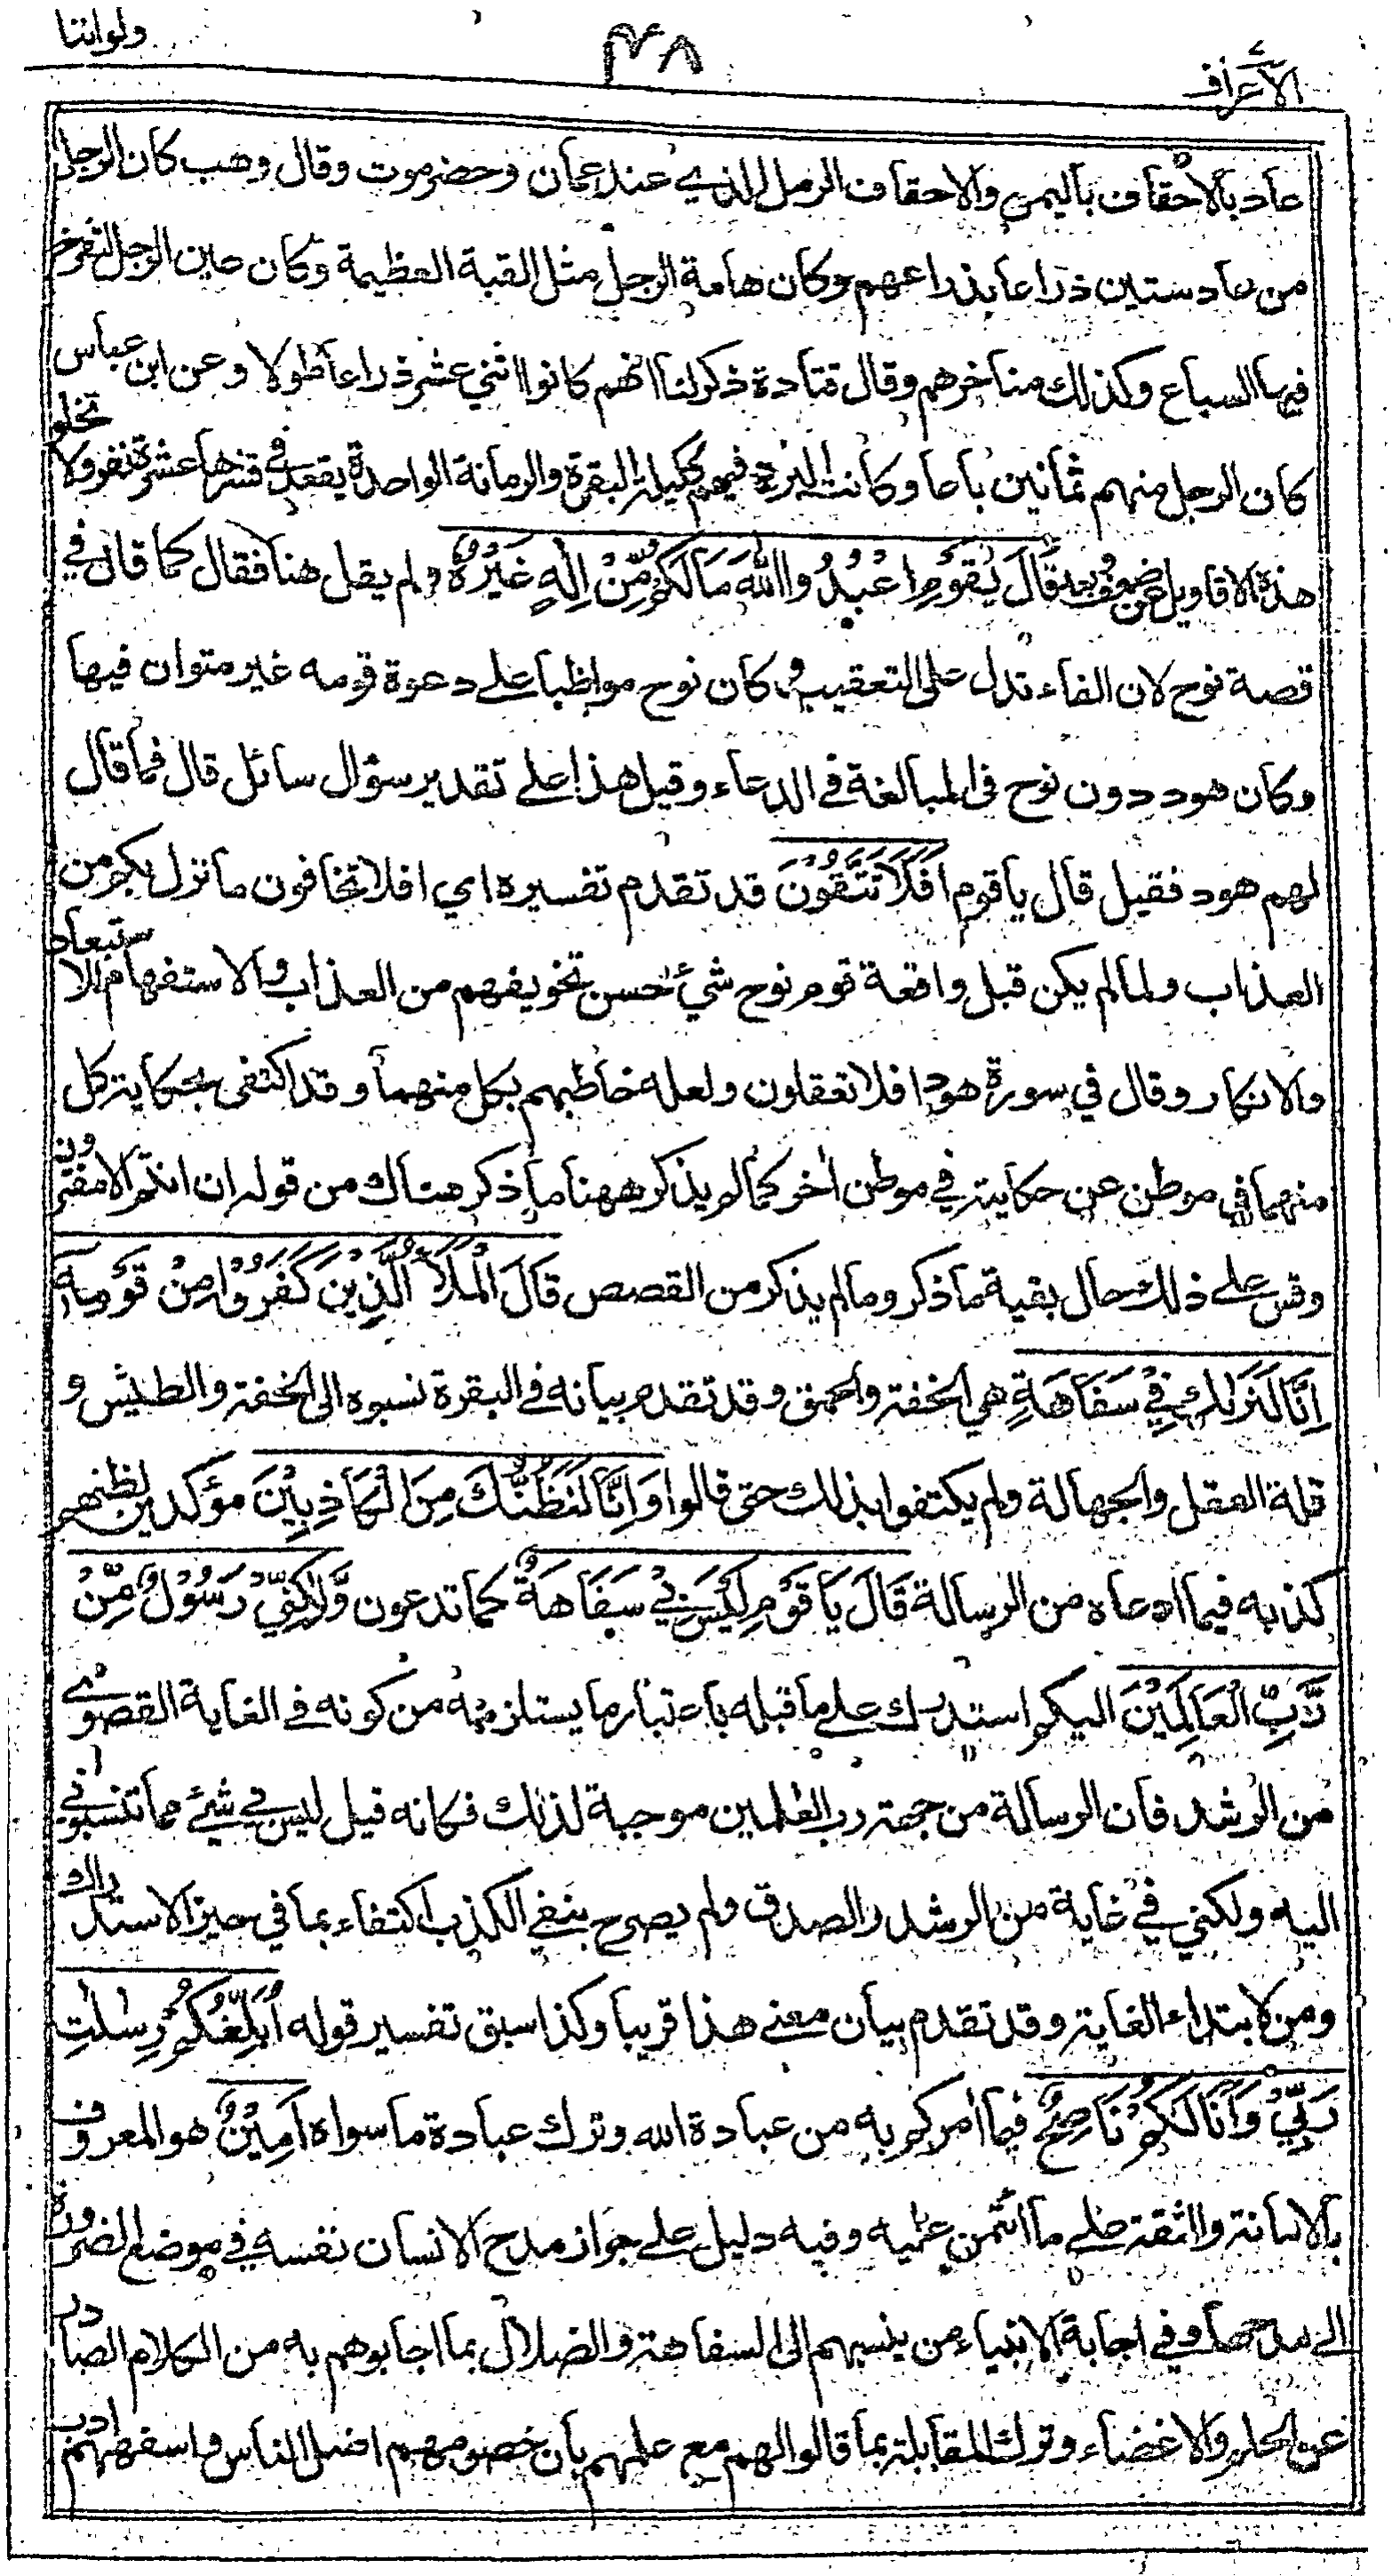 ولواننا
٤٨
الأعراف
عاد بالأحقاف باليمن والاحقاف الرمل الذي عند عمان وحضرموت وقال وهب كان الرجل
من عاد ستين ذراعا بذراعهم وكان هامة الرجل مثل القبة العظيمة وكان عين الرجل لتفرخ
فيها السباع وكذلك مناخرهم وقال قتادة ذكر لنا انهم كانوا اثني عشر ذراعا طولا وعن ابن عباس
كان الرجل منهم ثمانين باعا وكانت البرة فيهم ككيلة البقرة والرمانة الواحدة يقعد في قشرها عشرة نفر ولا تخلو
هذه الاقاويل عن ضعف وبعد قَالَ يٰقَوْمِ اعْبُدُوا اللَّهَ مَا لَكُمْ مِّنْ اِلٰهٍ غَيْرُهُ ولم يقل هنا فقال كما قال في
قصة نوح لان الفاء تدل على التعقيب وكان نوح مواظبا على دعوة قومه غير متوان فيها
وكان هود دون نوح في المبالغة في الدعاء وقيل هذا على تقدير سؤال سائل قال فما قال
لهم هود فقيل قال يا قوم اَفَلَا تَتَّقُوْنَ قد تقدم تفسيره اي افلا تخافون ما نزل بكم من
العذاب ولما لم يكن قبل واقعة قوم نوح شيء حسن تخويفهم من العذاب والاستفهام للاستبعاد
والانكار وقال في سورة هود افلا تعقلون ولعله خاطبهم بكل منهما وقد اكتفى بحكاية كل
منهما في موطن عن حكايته في موطن اخر كما لم يذكر ههنا ما ذكر هناك من قوله ان انتم الا مفترون
وقس على ذلك حال بقية ما ذكر وما لم يذكر من القصص قَالَ الْمَلَأُ الَّذِيْنَ كَفَرُوْا مِنْ قَوْمِهٖ
اِنَّا لَنَرٰىكَ فِيْ سَفَاهَةٍ هي الخفة والحمق وقد تقدم بيانه في البقرة نسبوه الى الخفة والطيش و
قلة العقل والجهالة ولم يكتفوا بذلك حتى قالوا وَاِنَّا لَنَظُنُّكَ مِنَ الْكَاذِبِيْنَ مؤكدين لظنهم
كذبه فيما ادعاه من الرسالة قَالَ يَا قَوْمِ لَيْسَ بِيْ سَفَاهَةٌ كما تدعون وَّلٰكِنِّيْ رَسُوْلٌ مِّنْ
رَّبِّ الْعَالَمِيْنَ اليكم استدرك على ما قبله باعتبار ما يستلزمه من كونه في الغاية القصوى
من الرشد فان الرسالة من جهة رب العلمين موجبة لذلك فكانه قيل ليس بي شيء مما تنسبوني
اليه ولكني في غاية من الرشد والصدق ولم يصرح بنفي الكذب اكتفاء بما في حيز الاستدراك
ومن لابتداء الغاية وقد تقدم بيان معنى هذا قريبا وكذا سبق تفسير قوله اُبَلِّغُكُمْ رِسٰلٰتِ
رَبِّيْ وَاَنَا لَكُمْ نَاصِحٌ فيما امركم به من عبادة الله وترك عبادة ما سواه اَمِيْنٌ هو المعروف
بالامانة والثقة على ما ائتمن عليه وفيه دليل على جواز مدح الانسان نفسه في موضع الضرورة
الى مدحها وفي اجابة الانبياء من ينسبهم الى السفاهة والضلال بما اجابوهم به من الكلام الصادر
عن الحلم والاغضاء وترك المقابلة بما قالوا لهم مع علمهم بان خصومهم اضل الناس واسفههم ادب